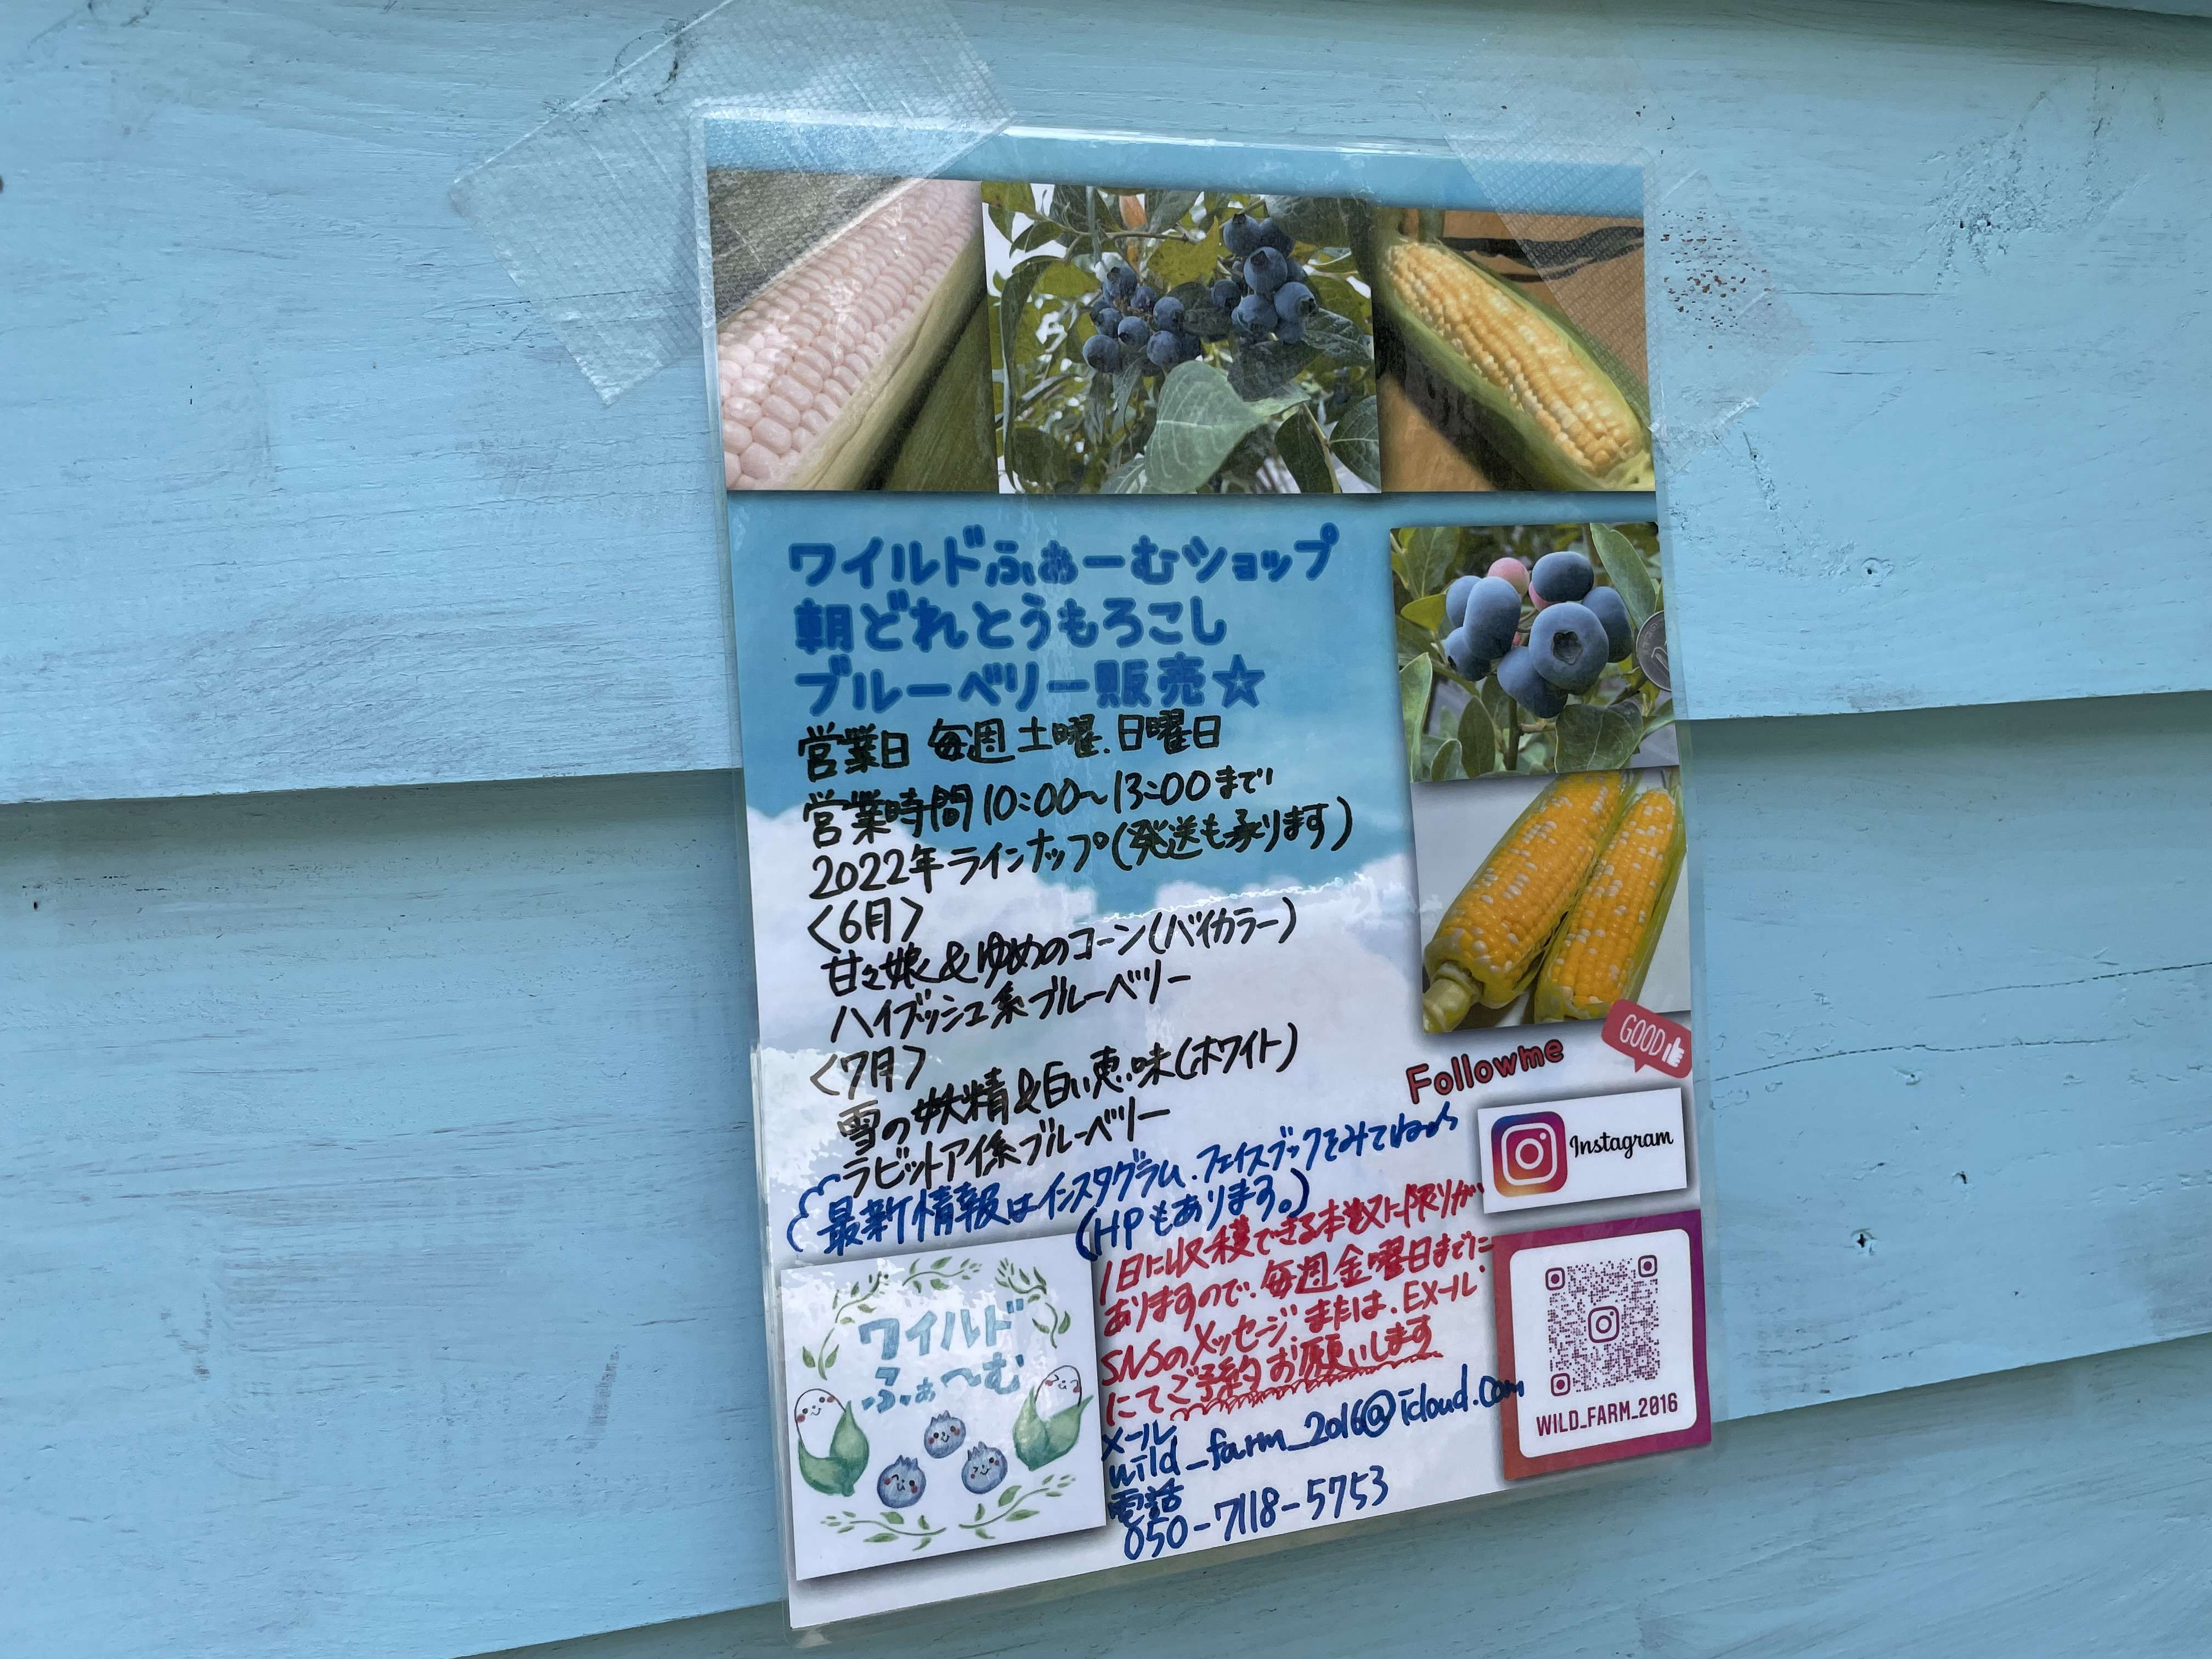 ワイルドふぁーむショップ
朝どれとうもろこし
ブルーベリー販売☆
営業日 毎週土曜.日曜日
営業時間10:00~13:00まで
2022年ラインナップ(発送も承ります)
<6月>
甘々娘&ゆめのコーン(バイカラー)
ハイブッシュ系ブルーベリー
<7月>
雪の妖精&白い恵味(ホワイト)
ラビットアイ系ブルーベリー
最新情報はインスタグラム.フェイスブックをみてね♪
(HPもあります。)
1日に収穫できる本数に限りが
ありますので、毎週金曜日までに
SNSのメッセージまたは、Eメール
にてご予約お願いします
メール
wild_farm_2016@icloud.com
電話
050-7118-5753
GOOD
Followme
Instagram
WILD_FARM_2016
ワイルド
ふぁ～む